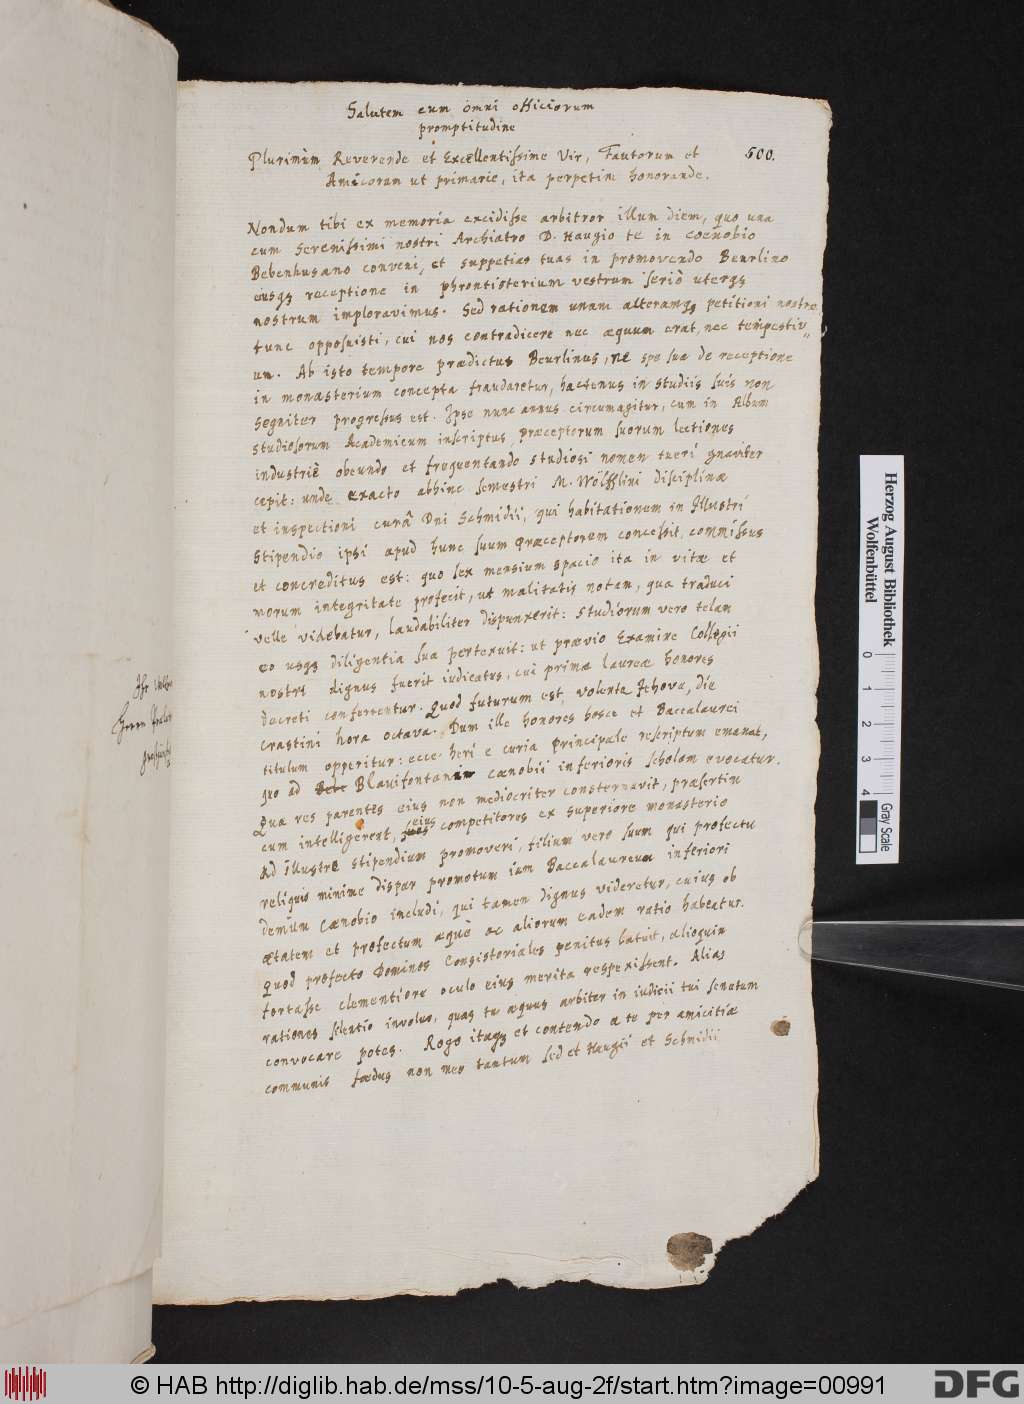 Salutem cum omni officiorum
promptitudine
500.
Plurimùm Reverende et Excellentissime Vir, Fautorum et
Amicorum ut primarie, ita perpetim honorande.
Nondum tibi ex memoria excidisse arbitror illum diem, quo una
cum Serenissimi nostri Archiatro D. Haugio te in coenobio
Bebenhusano conveni, et suppetias tuas in promovendo Beurlino
eiusqꝫ receptione in phrontisterium vestrum seriò uterqꝫ
nostrum imploravimus. Sed rationem unam alteramqꝫ petitioni nostræ
tunc opposuisti, cui nos contradicere nec æquum erat, nec tempestiv„
um. Ab isto tempore prædictus Beurlinus, ne spe sua de receptione
in monasterium concepta fraudaretur, hactenus in studiis suis non
segniter progressus est. Ipse nunc annus circumagitur, cum in Album
studiosorum Academicum inscriptus, præceptorum suorum lectiones
industriè obeundo et frequentando studiosi nomen tueri gnaviter
cepit: unde exacto abhinc semestri M. Wölfflini disciplinæ
et inspectioni curâ Dni Schmidii, qui habitationem in Illustri
stipendio ipsi apud hunc suum Præceptorem concessit, commissus
et concreditus est: quo sex mensium spacio ita in vitæ et
morum integritate profecit, ut malitatis notam, qua traduci
velle videbatur, laudabiliter dispunxerit: studiorum vero telam
eo usqꝫ diligentia sua pertexuit: ut prævio Examine Collegii
nostri dignus fuerit iudicatus, cui primæ laureæ honores
decreti conferrentur. Quod futurum est, volente Jehova, die
crastini hora octava. Dum ille honores hosce et Baccalaurei
titulum opperitur: ecce heri e curia principale rescriptum emanat,
quo ad Blauifontanum cænobii inferioris scholam evocatur.
Qua res parentes eius non mediocriter consternavit, præsertim
cum intelligerent, eius competitores ex superiore monasterio
ad illustre stipendium promoveri, filium vero suum qui profectu
reliquis minime dispar promotum iam Baccalaureum inferiori
demùm cænobio includi, qui tamen dignus videretur, cuius ob
ætatem et profectum æquè ac aliorum eadem ratio habeatur.
Quod profecto Dominos Consistoriales penitus latuit, alioquin
fortasse clementiore oculo eius merita respexissent. Alias
rationes silentio involuo, quas tu æquus arbiter in iudicii tui senatum
convocare potes. Rogo itaqꝫ et contendo a te per amicitiæ
communis fœdus non meo tantum sed et Haugii et Schmidii
Herzog August Bibliothek
Wolfenbüttel
0 1 2 3 4
Gray Scale
© HAB http://diglib.hab.de/mss/10-5-aug-2f/start.htm?image=00991
DFG